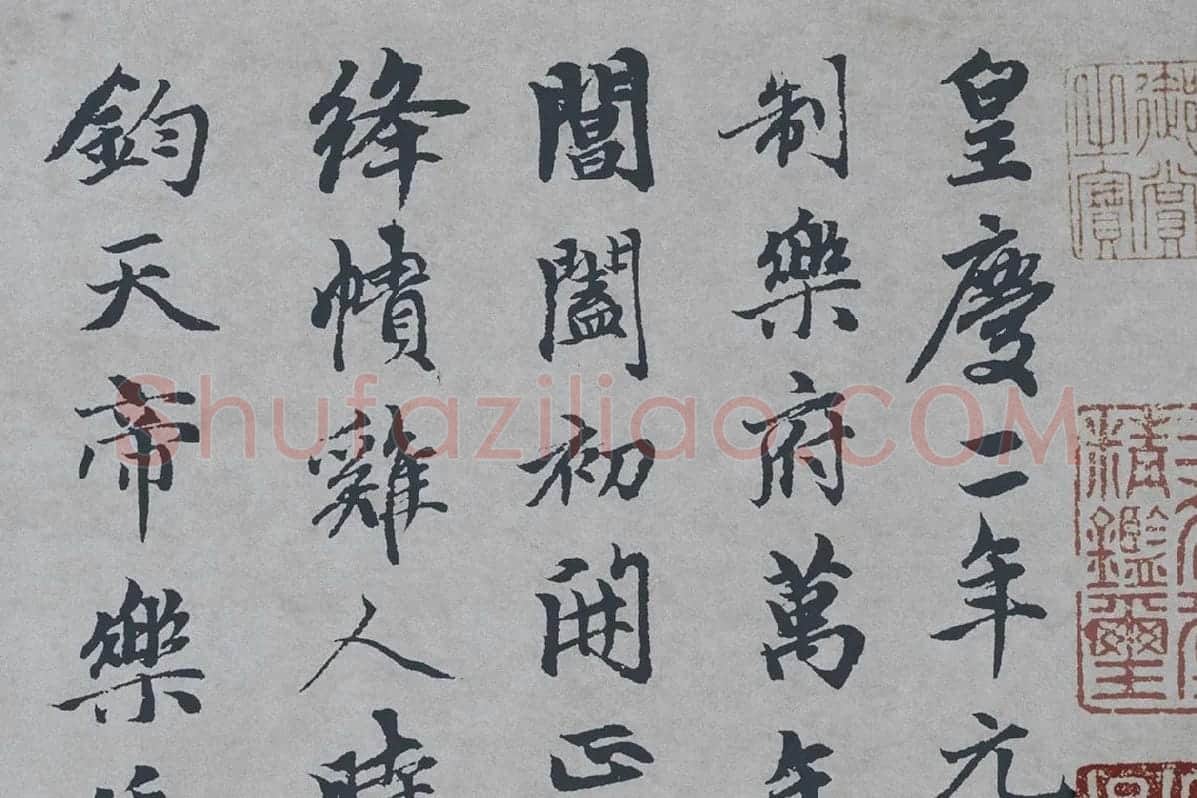 皇慶二年元
制樂府萬年
閶闔初開正
絳幘雞人曉
鈞天帝樂
御賞之寶
精鑑璽
Shufaziliao.COM